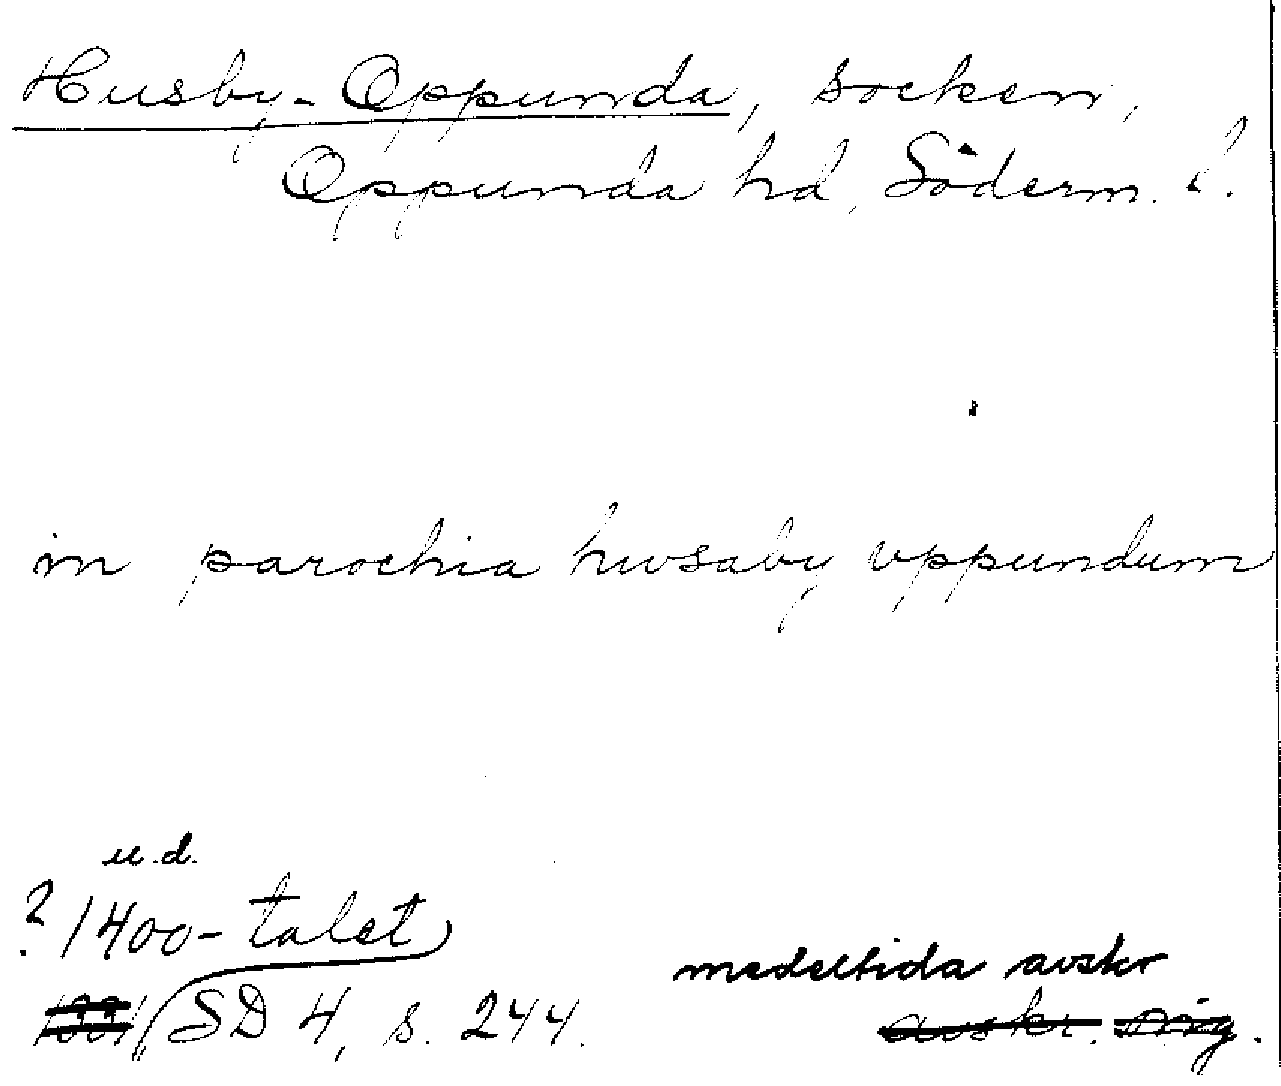 Husby-Oppunda, socken,
Oppunda hd, Söderm. l.
in parochia hwsaby vppundum
u.d.
? 1400-talet
SD 4, s. 244.
medeltida avskr
avskr. orig.